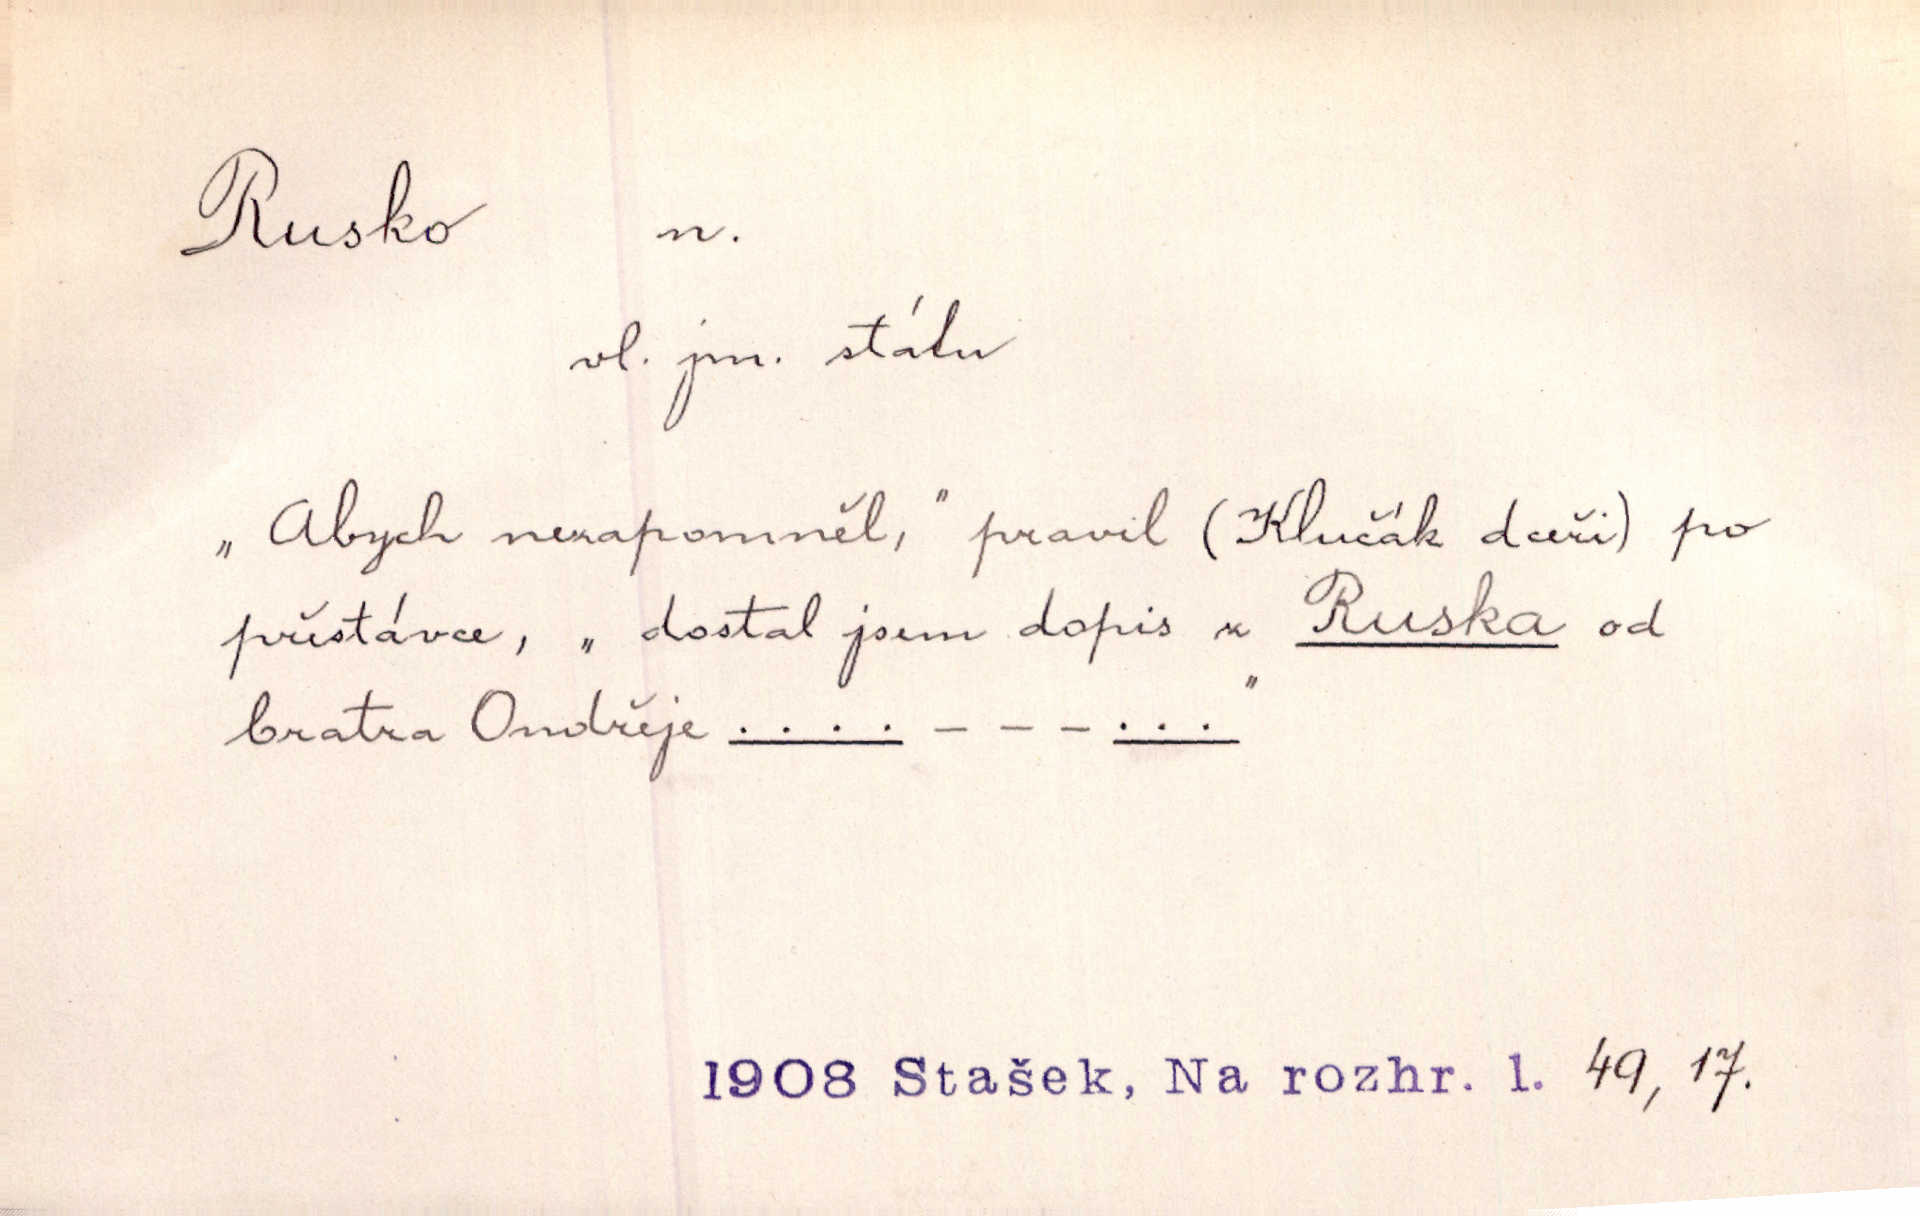 Rusko n.
vl. jm. státu
„Abych nezapomněl," pravil (Klučák dceři) po
přístávce, „dostal jsem dopis z Ruska od
bratra Ondřeje .... - - - ..."
1908 Stašek, Na rozhr. 1. 49, 17.